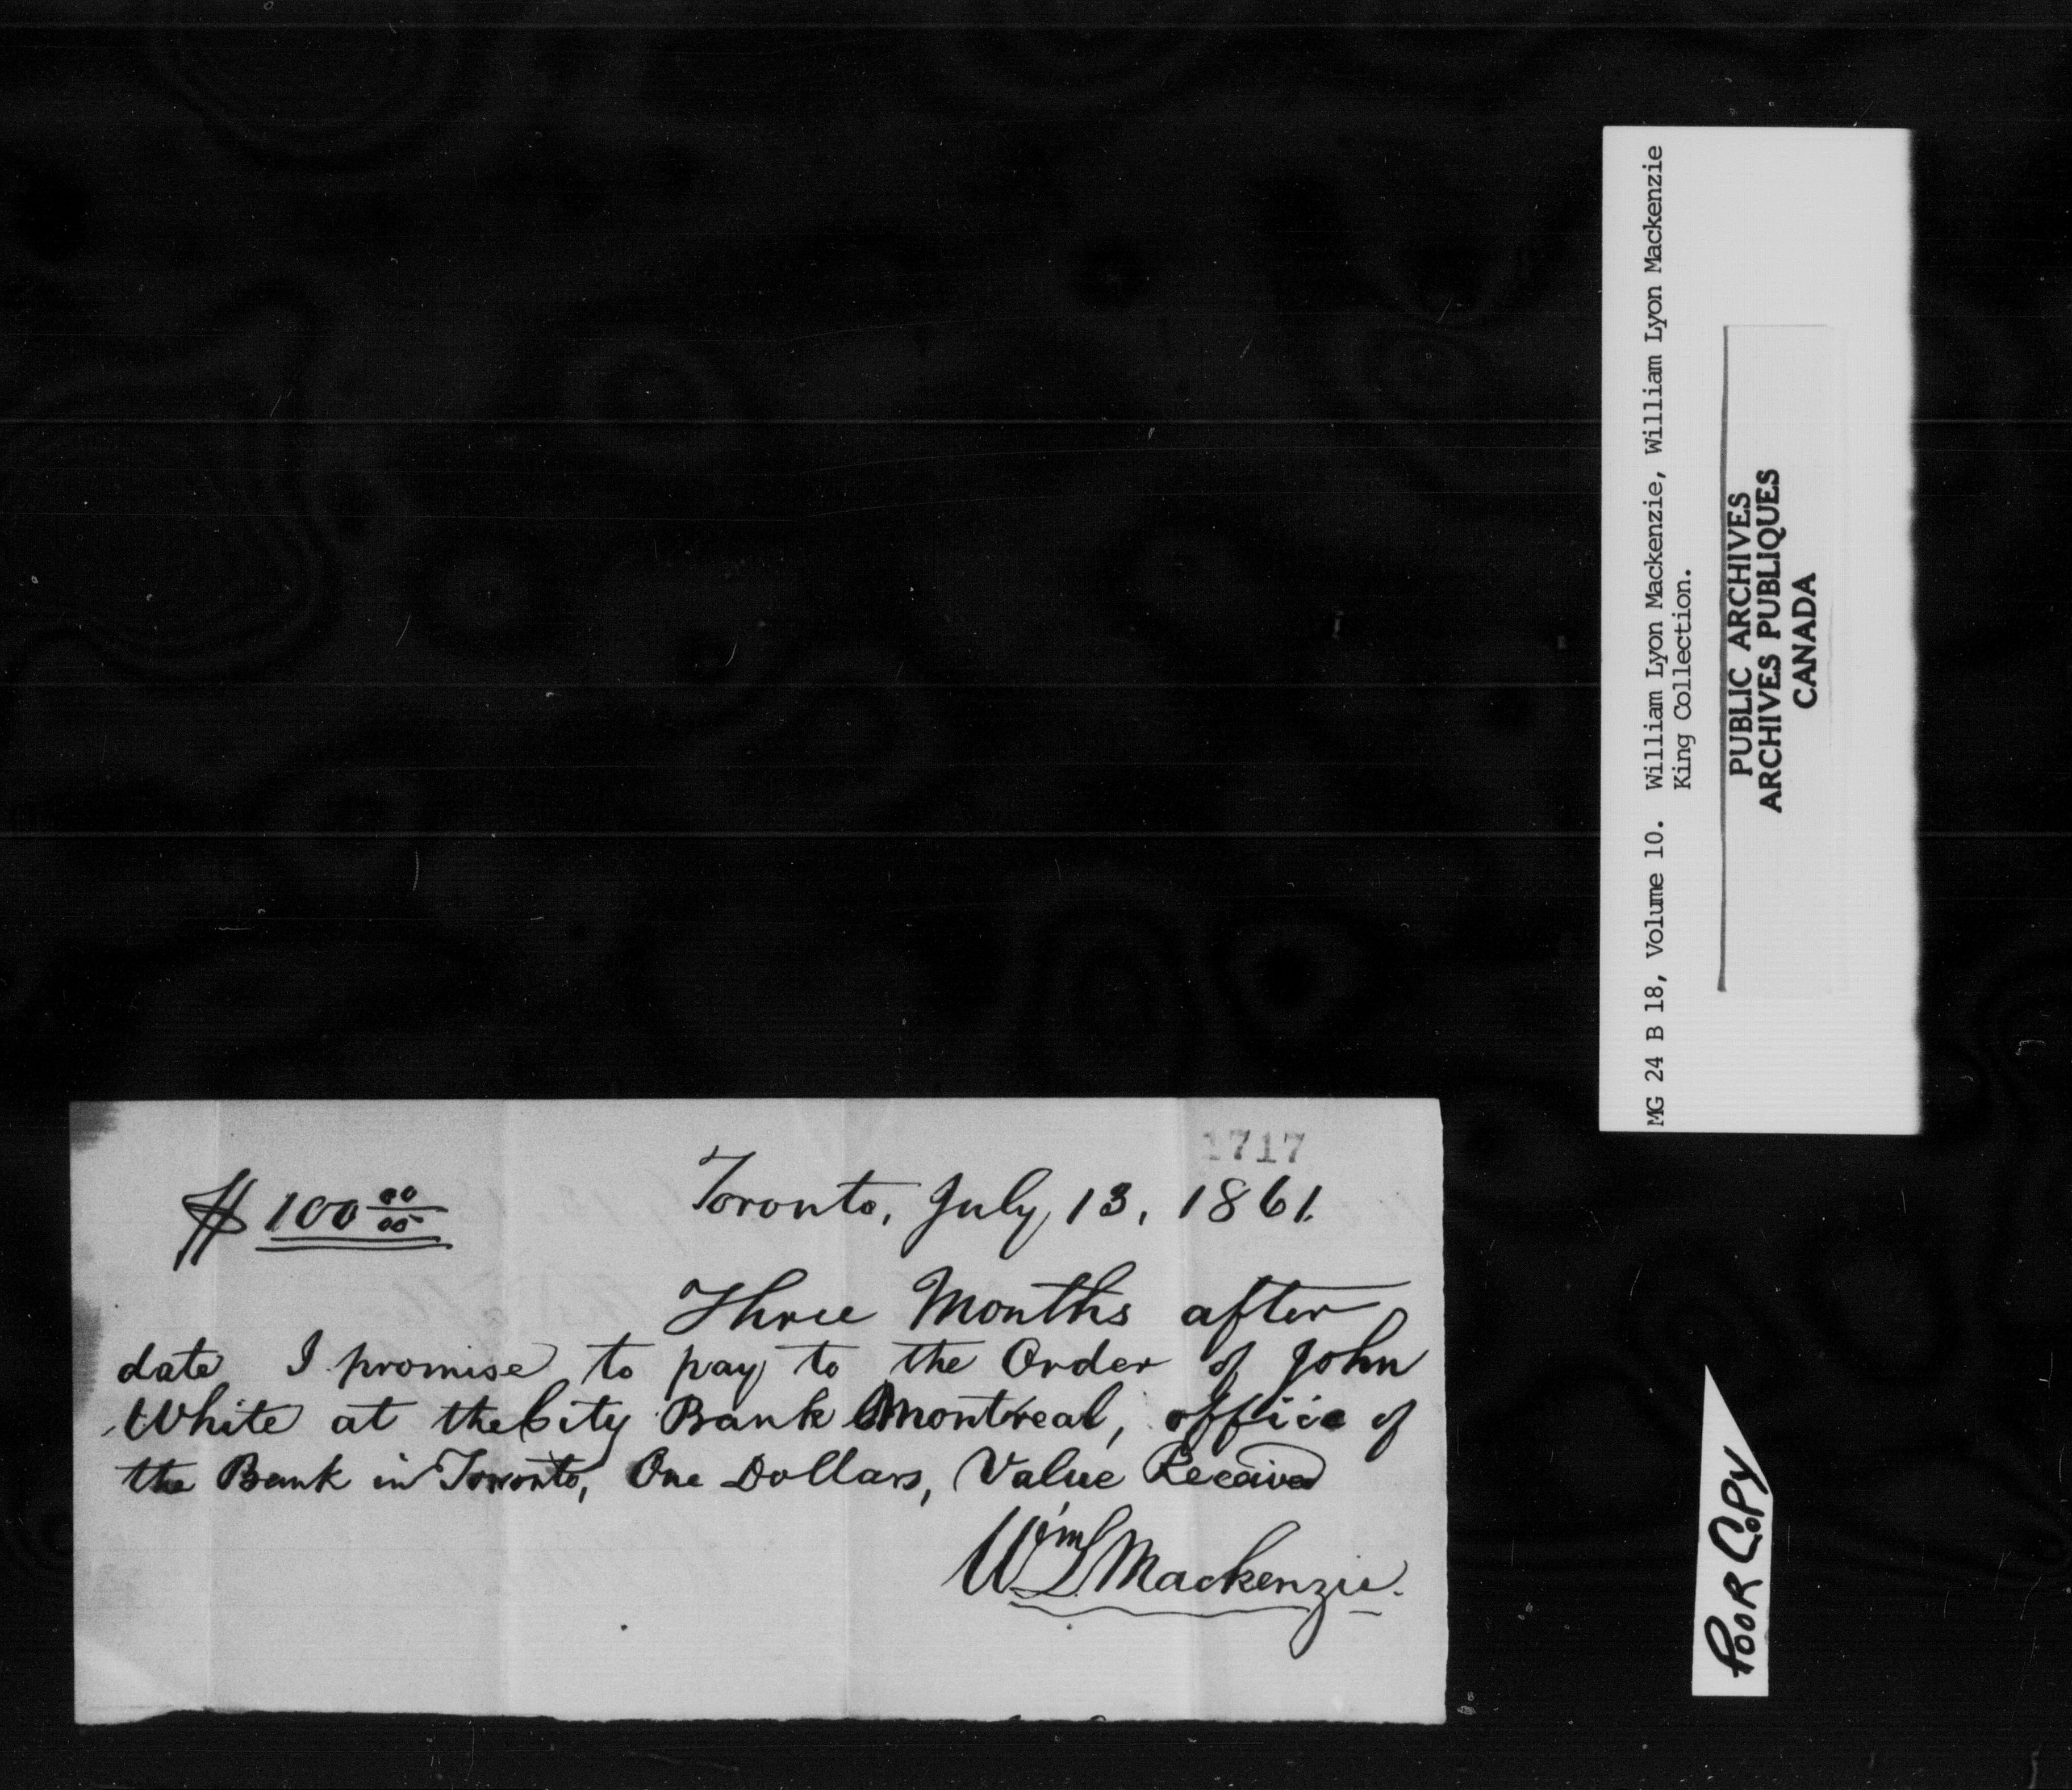 1717
$ 100 00/00
Toronto, July 13, 1861.
Three Months after
date I promise to pay to the Order of John
White at the City Bank Montreal, office of
the Bank in Toronto, One Dollars, Value Received
Wm L Mackenzie.
MG 24 B 18, Volume 10. William Lyon Mackenzie, William Lyon Mackenzie
King Collection.
PUBLIC ARCHIVES
ARCHIVES PUBLIQUES
CANADA
POOR COPY